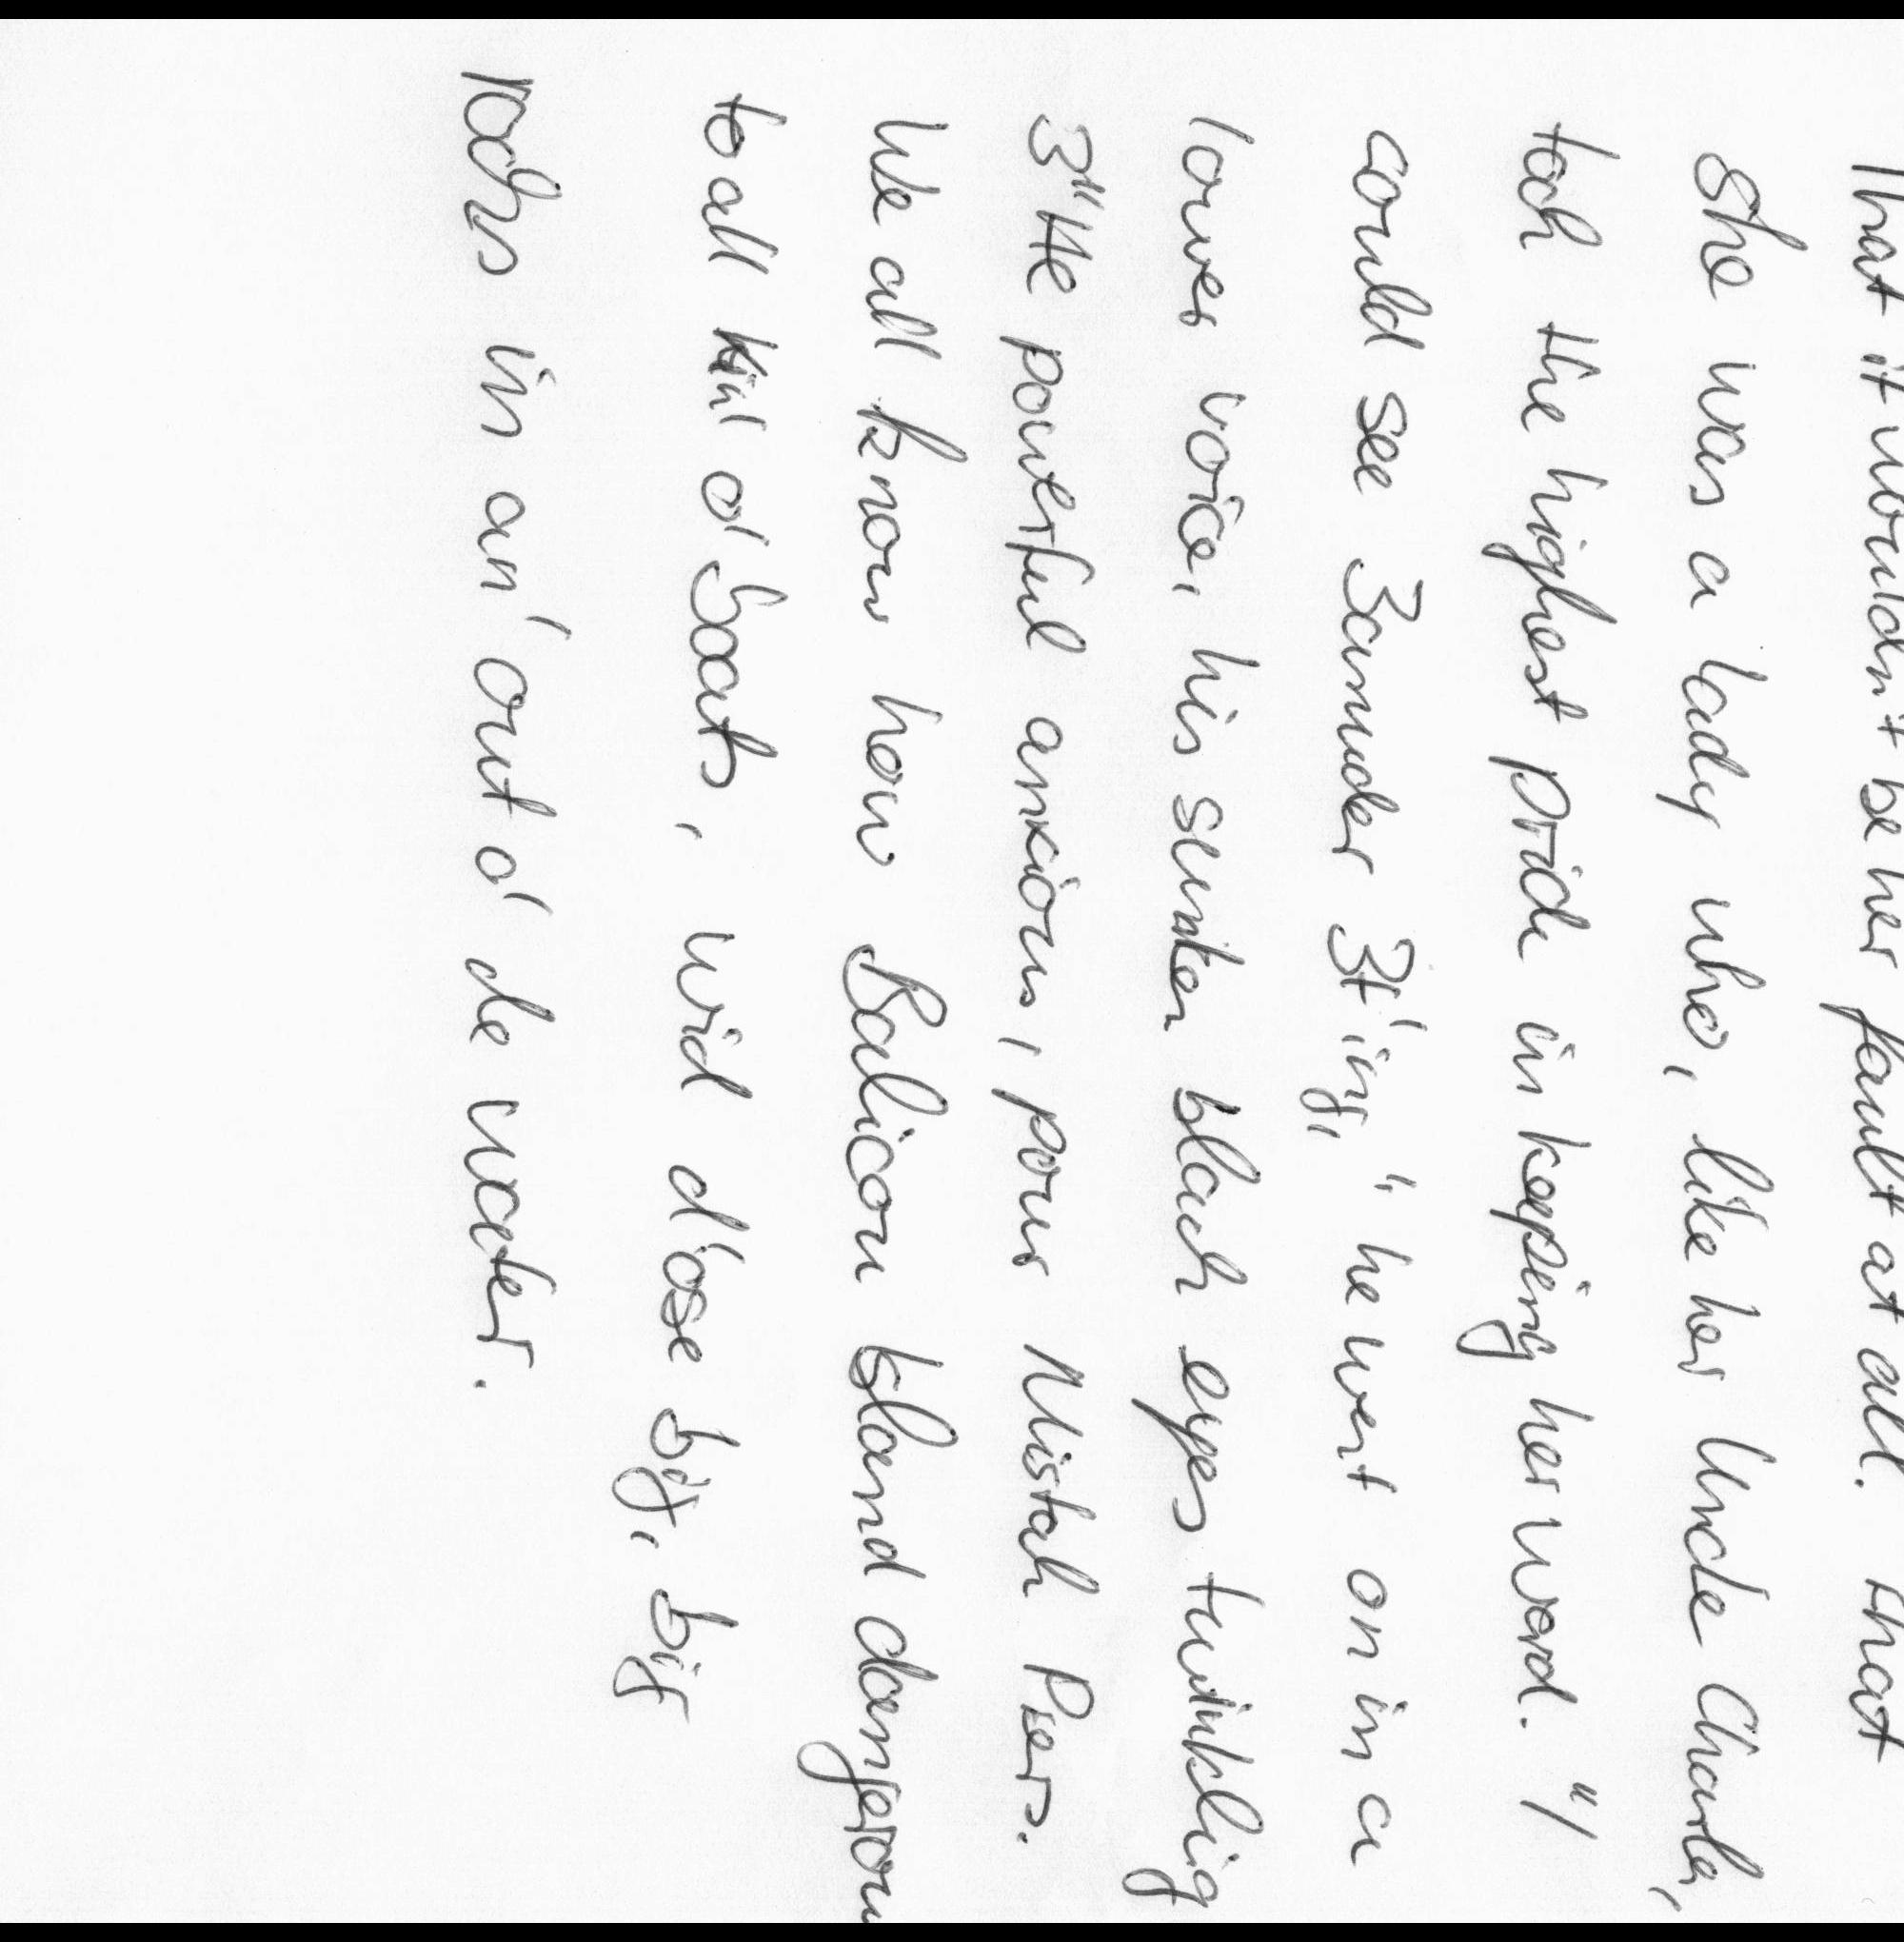 That it wouldn't be her fault at all. That
She was a lady who, like her Uncle Charles,
took the highest pride in keeping her word. "I
could see 3amuder 3t'ing," he went on in a
lower voice, his sunken black eyes twinkling
3" He powerful anxious, pour Mistah Piers.
We all know how Balicou Island dangerous
to all kin' o' boats, wid d'ose big, big
rocks in an' out o' de water.